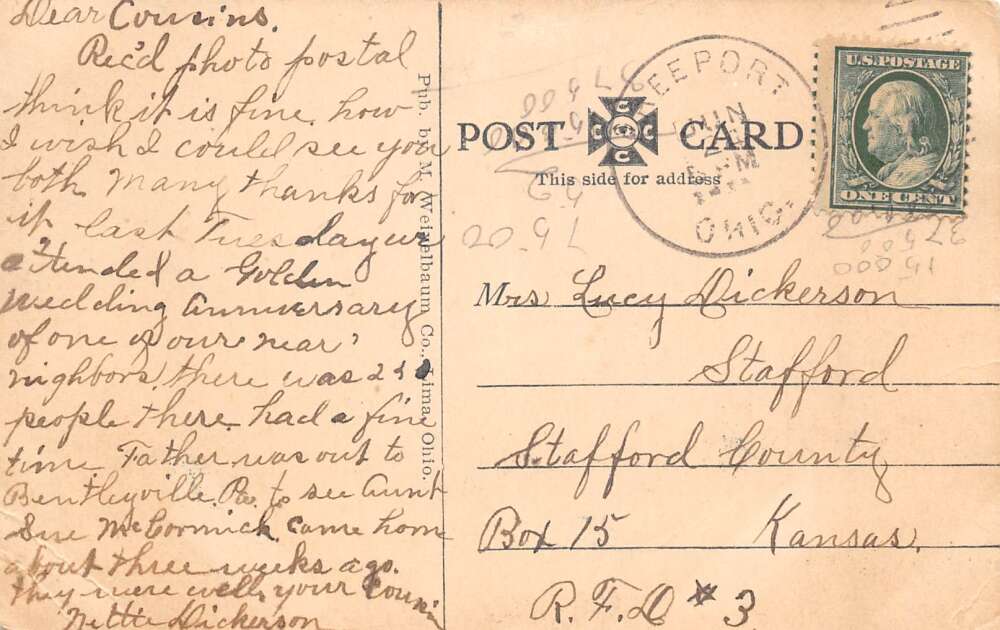 Dear Cousins.
Rec'd photo postal
think it is fine. how
I wish I could see you
both many thanks for
it last Tuesday we
attended a Golden
Wedding Anniversary
of one of our near
nighbors. there was
people there had a fine
time. Father was out to
Bentleyville Pa. to see Aunt
Sue McCormick. Came home
about three weeks ago.
they were well, your Cousin
Nettie Dickerson
Pub. by M. Weixelbaum Co., Lima, Ohio.
POST CARD
This side for address
FREEPORT
JUN
OHIO.
U.S. POSTAGE
ONE CENT
Mrs Lucy Dickerson
Stafford
Stafford County
Box 15 Kansas.
R.F.D # 3
37500
15000
7500